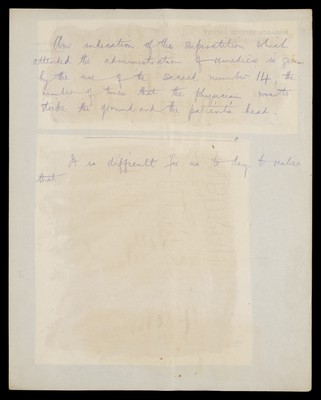 An indication of the superstition which
attended the administration of is given
by the use of the sacred number 14, the
number of times that the physician must
stroke the ground and the patient's head.
It is difficult for us to day to realise
that